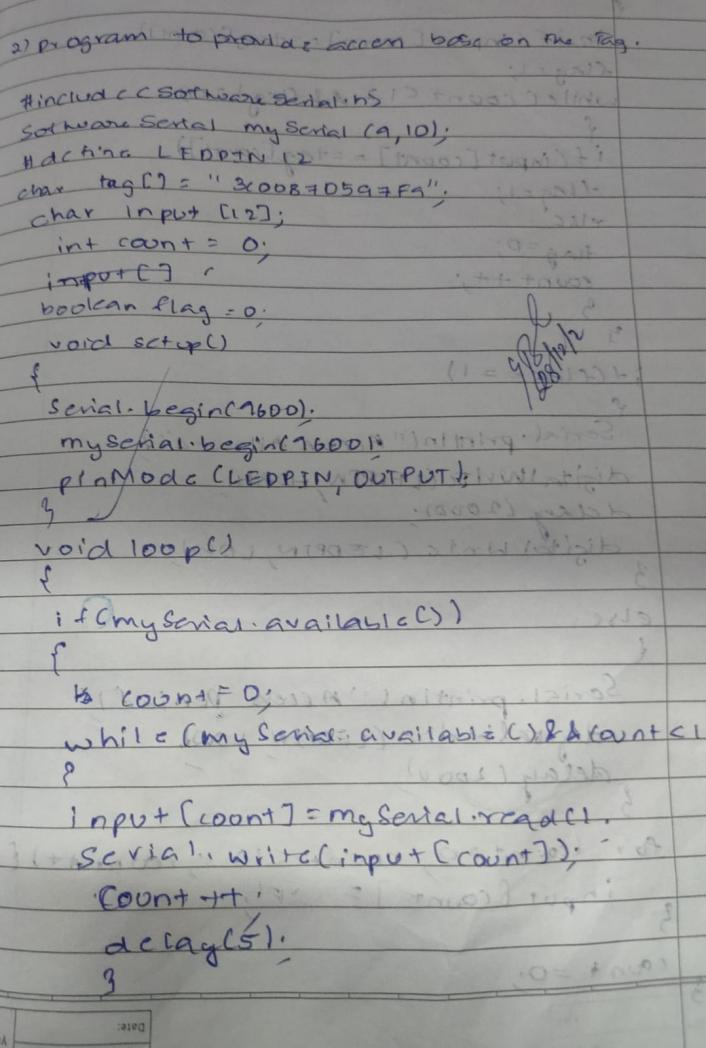 2) Program to provide accem base on the Tag.
#include < Software serial.h>
Software Serial my Serial (9,10);
#define LEDPIN 12
char tag[] = "3C00870597F9";
char input [12];
int count = 0;
input []
boolean flag = 0;
void setup()
{
Serial.begin(9600);
mySerial.begin(9600);
pinMode (LEDPIN, OUTPUT);
}
void loop()
{
if(mySerial.available())
{
count = 0;
while (my Serial. available () && count < 1
{
input [count] = mySerial.read();
Serial.write(input [count]);
Count ++;
delay(5);
}
Date: